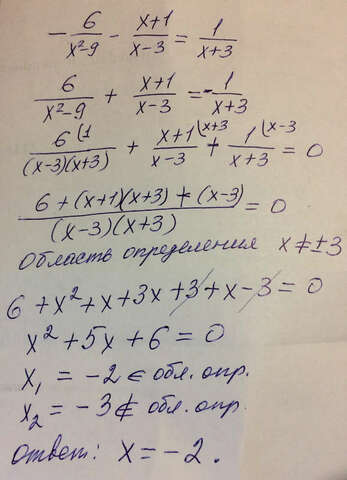 - 6/(x²-9) - (x+1)/(x-3) = 1/(x+3)
6/(x²-9) + (x+1)/(x-3) = -1/(x+3)
6⌊1/((x-3)(x+3)) + (x+1)⌊x+3/(x-3) + 1⌊x-3/(x+3) = 0
(6 + (x+1)(x+3) + (x-3))/((x-3)(x+3)) = 0
Область определения x ≠ ±3
6 + x² + x + 3x + 3 + x - 3 = 0
x² + 5x + 6 = 0
x₁ = -2 ∈ обл. опр.
x₂ = -3 ∉ обл. опр.
ответ: x = -2.